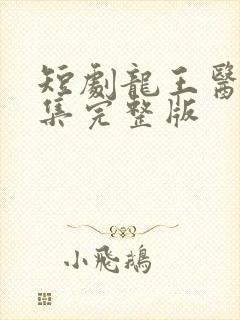 短劇龍王醫
集完整版
小飛鵝